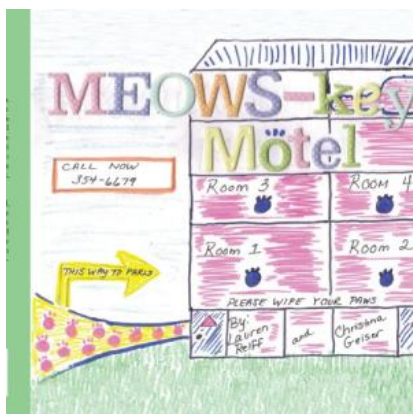 MEOWS-key
Motel
CALL NOW
354-6679
Room 3
ROOM 4
Room 1
Room 2
THIS WAY TO PARIS
PLEASE WIPE YOUR PAWS
By:
Lauren
Reiff
and
Christina
Geiser